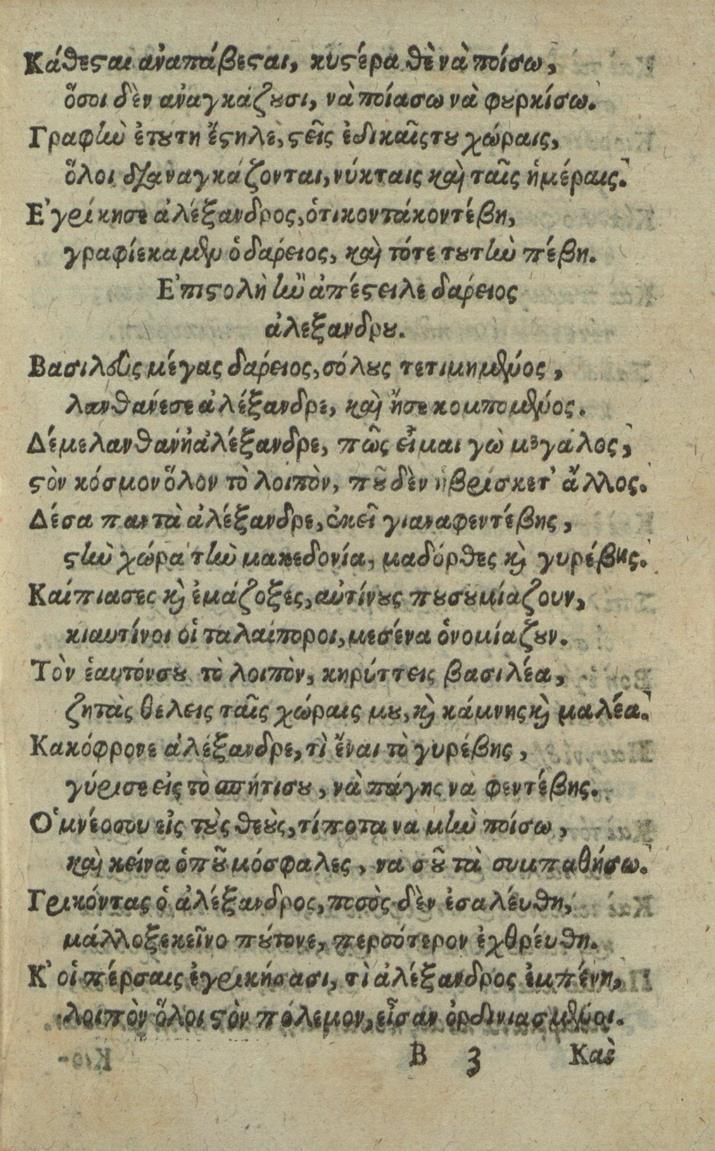 Κάθεϛαι ἀναπάβεϛαι, κυϛέρα θὲ νὰ ποίσω,
ὅσοι δὲν ἀναγκάζȣσι, νὰ ποίασω νὰ φυρκίσω.
Γραφὴν ἐτȣτη ἔϛηλε, ϛεῖς ἐδικαῖϛτȣ χώραις,
ὅλοι διαναγκάζονται, νύκταις καὶ ταῖς ἡμέραις.
Ε᾽γρίκησε ἀλέξανδρος, ὁτικοντάκοντέβη,
γραφίεκαμεν ὁ δαρειος, καὶ τότε τȣτὴν πέβη.
Ε᾽πιϛολὴ ἣν ἀπέϛειλε δαρειος
ἀλεξανδρȣ.
Βασιλεὺς μέγας δαρειος, σόλȣς τετιμημένος,
λανθανεσε ἀλέξανδρε, καὶ ἦσε κομπομένος.
Δέμελανθανὴ ἀλέξανδρε, πῶς εἶμαι γὼ μεγαλος,
ϛὸν κόσμον ὅλον τὸ λοιπὸν, πȣ δὲν ηὑβρίσκετ᾽ ἄλλος.
Δέσα παντὰ ἀλέξανδρε, ἐκεῖ γιαναφεντέβης,
ϛὴν χώρα τὴν μακεδονία, μαδόρθες κὶ γυρέβης.
Καίπιασες κὶ ἐμάζοξες, αὐτίνȣς πȣσυμίαζουν,
κιαυτίνοι οἱ ταλαίποροι, μεσένα ὀνομίαζȣν.
Τὸν ἑαυτόνσȣ τὸ λοιπὸν, κηρύττεις βασιλέα,
ζητὰς θελεις ταῖς χώραις μȣ, κὶ κάμνης κὶ μαλέα.
Κακόφρονε ἀλέξανδρε, τὶ ἔναι τὸ γυρέβης,
γύρισε εἰς τὸ σπήτισȣ, νὰ πάγης να φεντέβης.
Ο῾μνέοσου εἰς τȣς θεȣς, τίποτα να μὴν ποίσω,
καὶ κείνα ὁπȣ μόσφαλες, να σȣ τὰ συμπαθήσω.
Γρικόντας ὁ ἀλέξανδρος, ποσὸς δὲν ἐσαλέυθη,
μάλλοξεκεῖνο πȣτονε, περσότερον ἐχθρέυθη.
Κ᾽ οἱ πέρσαις ἐγρικήσασι, τὶ ἀλέξανδρος ἐμπένη,
λοιπὸν ὅλοι ϛὸν πόλεμον, εἶσαν ὀρδινιασμένοι.
Β 3 Καὶ